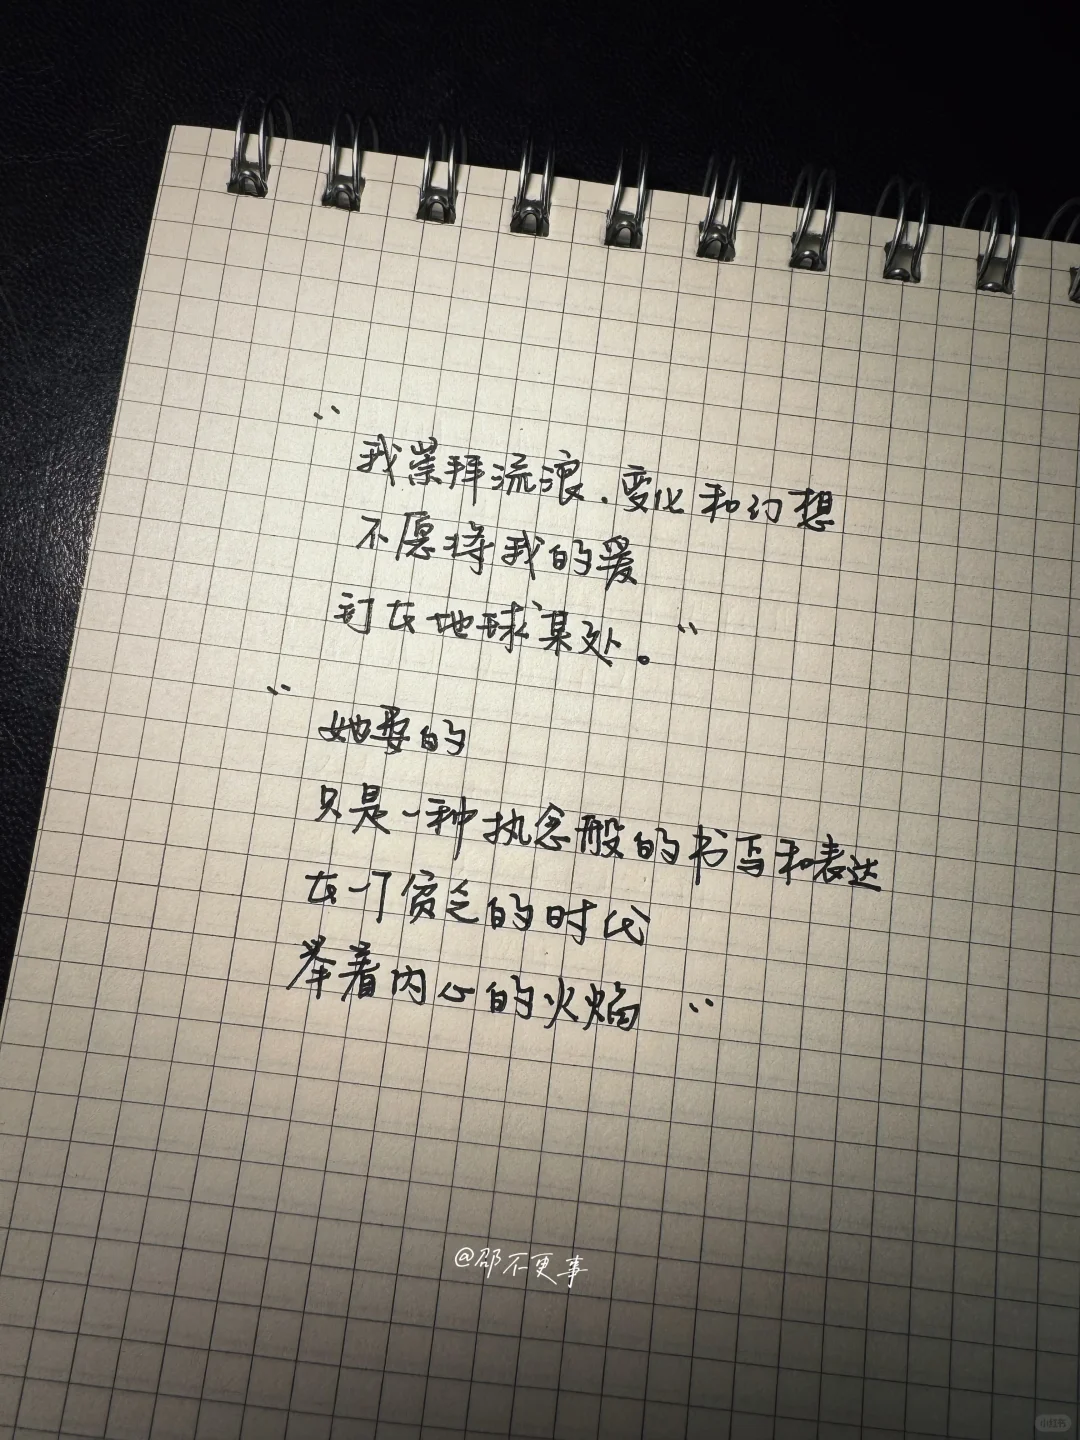 “
我崇拜流浪、变化和幻想
不愿将我的爱
钉在地球某处。”
“
她要的
只是一种执念般的书写和表达
在一个贫乏的时代
举着内心的火焰”
@邵不更事
小红书